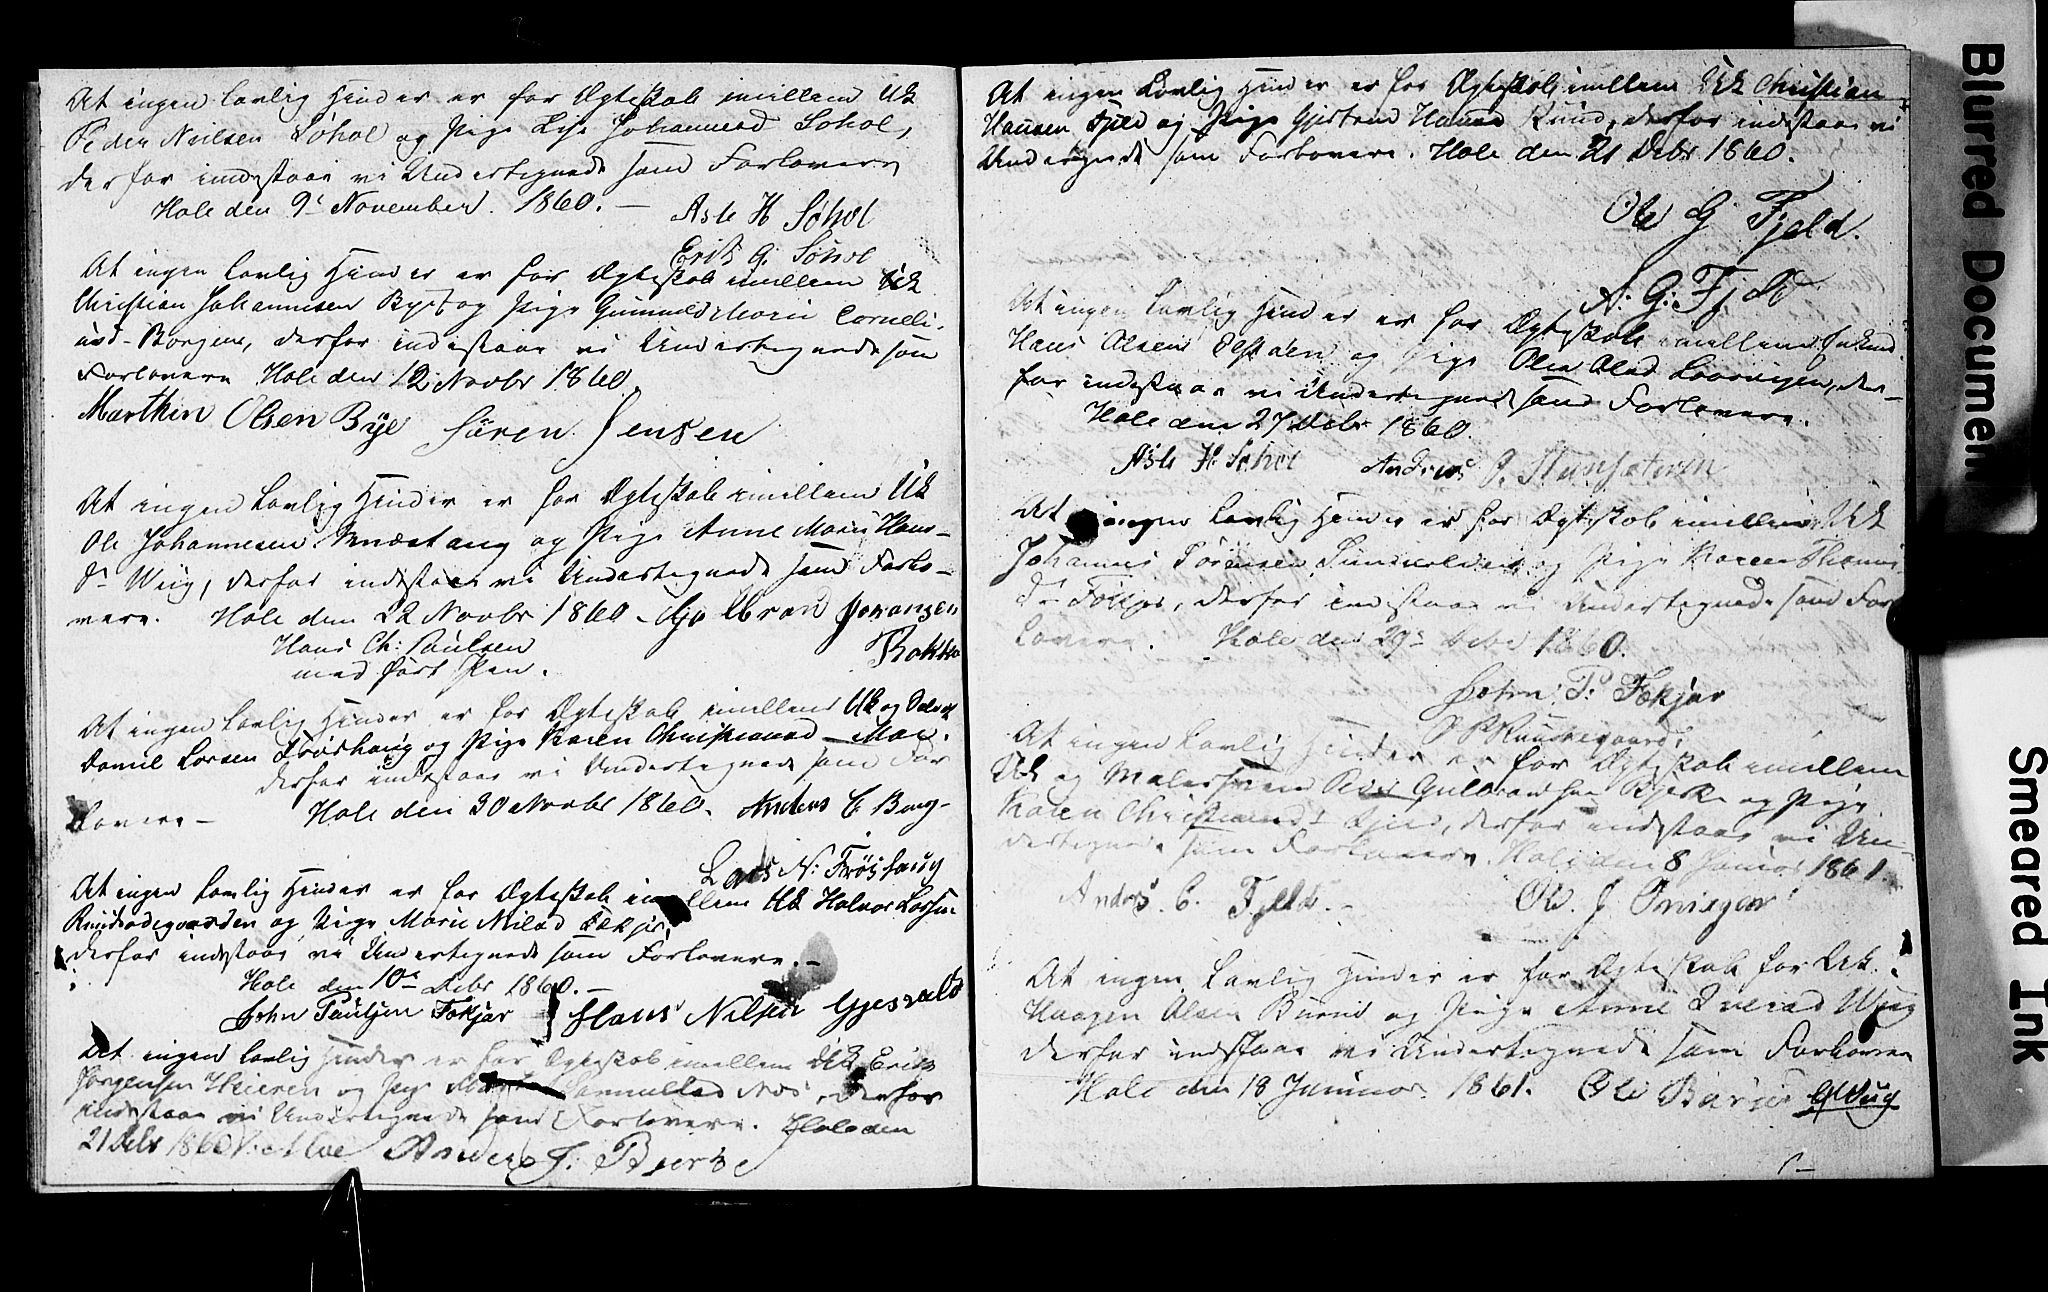 At ingen lovlig Hinder er for Ægteskab imellem Uk
Peder Nielsen Sohol og Pige Lise Johannesd Sohol,
derfor indestaar vi Undertegnede som Forlovere
Hole den 9d November 1860. — Asle H Sohol
Erik G. Sohol
At ingen lovlig Hinder er for Ægteskab imellem Uk
Christian Johannesen Bye og Pige Gunnild Marie Corneli-
usd Borgen, derfor indestaar vi Undertegnede som
Forlovere Hole den 12 Novbr 1860.
Marthin Olsen Bye Sören Jensen
At ingen lovlig Hinder er for Ægteskab imellem Uk
Ole Johannesen og Pige Anne Marie Hans-
dr Wiig, derfor indestaar vi Undertegnede som Forlo-
vere. Hole den 22 Novbr 1860. Gulbrand Johansen
Hans Ch: Paulsen Rokko
med ført Pen.
At ingen lovlig Hinder er for Ægteskab imellem Uk og
Daniel Larsen Frøshoug og Pige Karen Christiansd Moe.
derfor indestaar vi Undertegnede som For
lovere — Hole den 30 Novbr 1860. Anders C Borg-
Lars N: Frøshaug
At ingen lovlig Hinder er for Ægteskab imellem Uk Halvor Larsen
Rudsødegaarden og Pige Marie Nilsd Fekjær,
derfor indestaar vi Undertegnede som Forlovere. —
Hole den 10de Debr 1860. —
John Paulsen Fekjær Hans Nilsen Gjesvald
At ingen lovlig Hinder er for Ægteskab imellem Uk Erik
Jørgensen og Pige derfor
indestaar vi Undertegnede som Forlovere. Hole den
21 Debr 1860 Moe Anders J: Bjerke
At ingen lovlig Hinder er for Ægteskab imellem Uk Christian
Hansen Fjeld og Pige Gjertrud Hansd Rund, derfor indestaar vi
Undertegnede som Forlovere. Hole den 21 Debr 1860.
Ole G Fjeld.
A. G: Fjeld
At ingen lovlig Hinder er for Ægteskab imellem Enkemd
Hans Olsen og Pige Olea Olsd der-
for indestaar vi Undertegnede som Forlovere.
Hole den 27 Debr 1860.
Asle H. Sohol Andreas
At ingen lovlig Hinder er for Ægteskab imellem Uk
Johannes Sörensen Sundvolden og Pige Karen Thomas-
dr Fekjær, derfor indestaar vi Undertegnede som For
lovere. Hole den 29de Debr 1860.
John: P: Fekjær
At ingen lovlig Hinder er for Ægteskab imellem
Uk og Malersvend Peder Gulbrandsen Bjerke og Pige
Karen Christiansd Fjeld, derfor indestaar vi Un-
dertegnede som Forlovere. Hole den 8 Januar 1861.
Anders. C. Fjeld. — Ole. J
At ingen lovlig Hinder er for Ægteskab for Uk.
Haagen Olsen Burud og Pige Anne Iversd Wiig
derfor indestaar vi Undertegnede som Forlovere
Hole den 18 Januar 1861. Ole
Blurred Documen
Smeared Ink